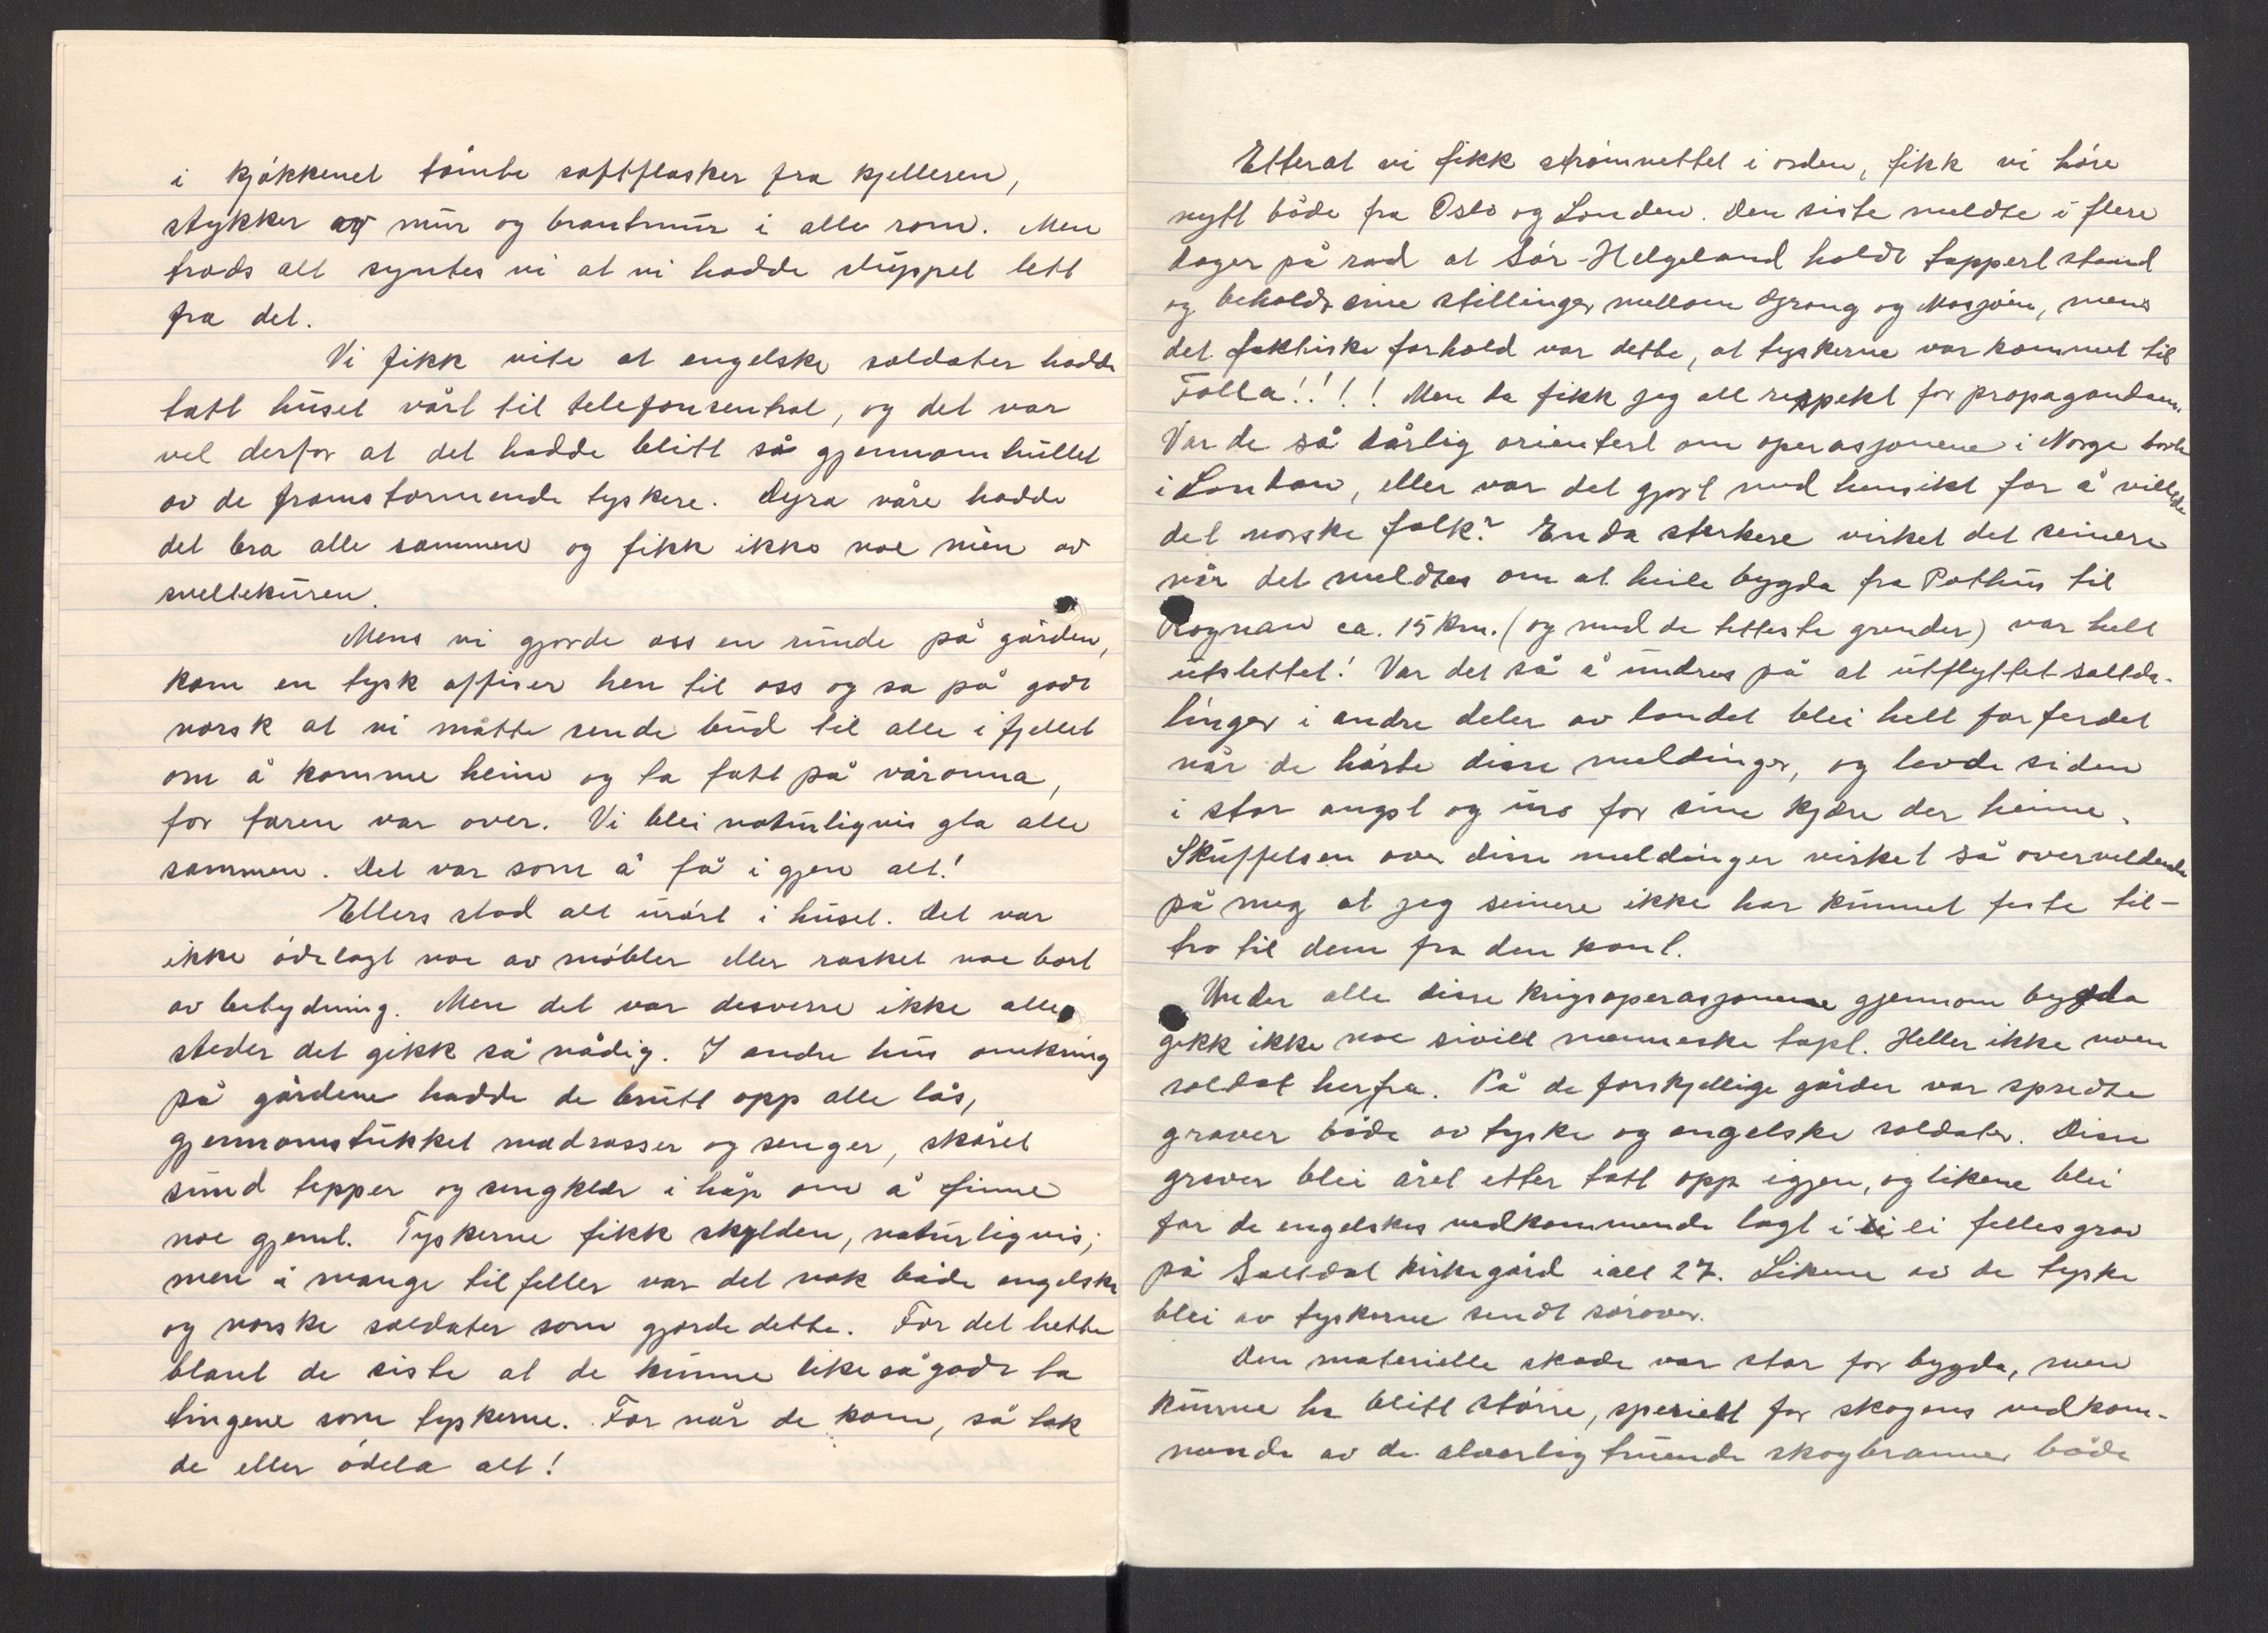 i kjøkkenet tømte saftflasker fra kjelleren,
stykker av mur og brantmur i alle rom. Men
trods alt syntes vi at vi hadde sluppet lett
fra det.
Vi fikk vite at engelske soldater hadde
tatt huset vårt til telefonsentral, og det var
vel derfor at det hadde blitt så gjennomhullet
av de framstormende tyskere. Dyra våre hadde
det bra alle sammen og fikk ikke noe mén av
sveltekuren.
Mens vi gjorde oss en runde på gården,
kom en tysk offiser hen til oss og sa på godt
norsk at vi måtte sende bud til alle i fjellet
om å komme heim og ta fatt på våronna,
for faren var over. Vi blei naturligvis gla alle
sammen. Det var som å få igjen alt!
Ellers stod alt urørt i huset. Det var
ikke ødelagt noe av møbler eller rasket noe bort
av betydning. Men det var desverre ikke alle
steder det gikk så nådig. I andre hus omkring
på gårdene hadde de brutt opp alle lås,
gjennomstukket madrasser og senger, skåret
sund tepper og sengklær i håp om å finne
noe gjemt. Tyskerne fikk skylden, naturligvis;
men i mange tilfeller var det nok både engelske
og norske soldater som gjorde dette. For det hette
blant de siste at de kunne like så godt ta
tingene som tyskerne. For når de kom, så tok
de eller ødela alt!
Etterat vi fikk strømnettet i orden, fikk vi høre
nytt både fra Oslo og London. Den siste meldte i flere
dager på rad at Sør-Helgeland holdt tappert stand
og beholdt sine stillinger mellom Grong og Mosjøen, mens
det faktiske forhold var dette, at tyskerne var kommet til
Tolla!!!! Men da fikk jeg all respekt for propagandaen.
Var de så dårlig orientert om operasjonene i Norge borte
i London, eller var det gjort med hensikt for å villede
det norske folk? Enda sterkere virket det seinere
når det meldtes om at heile bygda fra Pothus til
Rognan ca. 15 km. (og med de tetteste grender) var helt
utslettet! Var det så å undres på at utflyttet saltda-
linger i andre deler av landet blei helt forferdet
når de hørte disse meldinger, og levde siden
i stor angst og uro for sine kjære der heime.
Skuffelsen over disse meldinger virket så overveldende
på meg at jeg seinere ikke har kunnet feste til-
tro til dem fra den kant.
Under alle disse krigsoperasjonene gjennom bygda
gikk ikke noe sivilt menneske tapt. Heller ikke noen
soldat herfra. På de forskjellige gårder var spredte
graver både av tyske og engelske soldater. Disse
graver blei året etter tatt opp igjen, og likene blei
for de engelskes vedkommende lagt i ei fellesgrav
på Saltdal kirkegård ialt 27. Likene av de tyske
blei av tyskerne sendt sørover.
Den materielle skade var stor for bygda, men
kunne ha blitt større, spesielt for skogens vedkom-
mende av de alvorlig truende skogbranner både